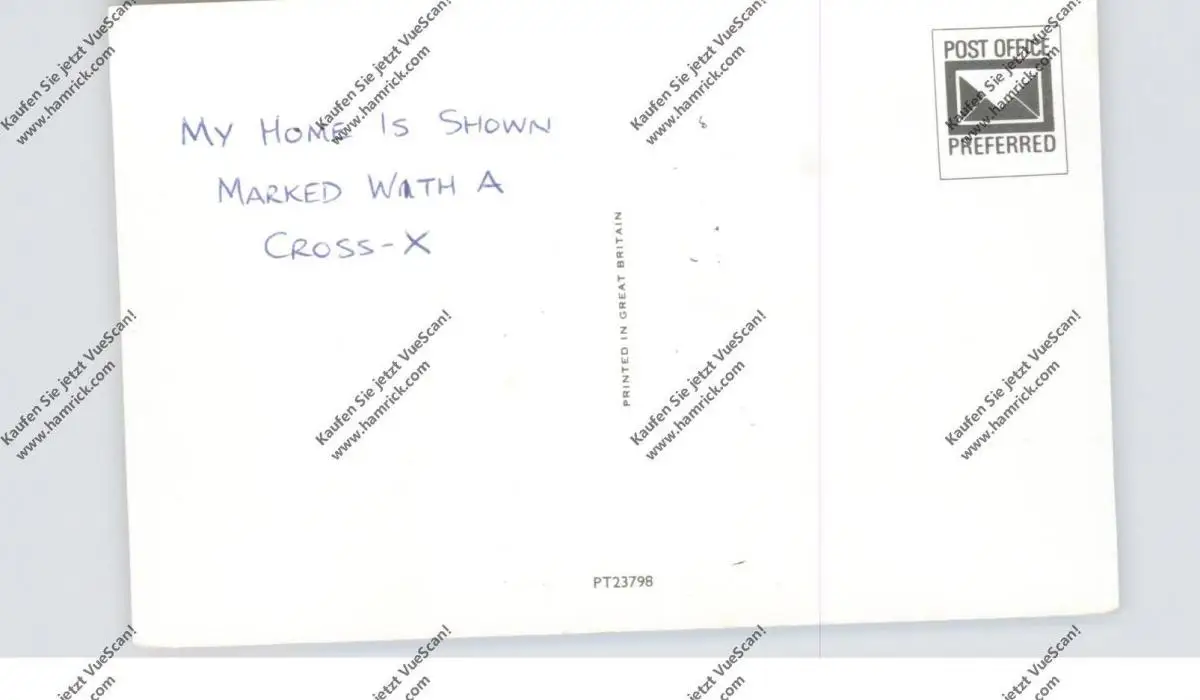 MY HOME IS SHOWN
MARKED WITH A
CROSS-X
POST OFFICE
PREFERRED
PRINTED IN GREAT BRITAIN
PT23798
Kaufen Sie jetzt VueScan!
www.hamrick.com
Kaufen Sie jetzt VueScan!
www.hamrick.com
Kaufen Sie jetzt VueScan!
www.hamrick.com
Kaufen Sie jetzt VueScan!
www.hamrick.com
Kaufen Sie jetzt VueScan!
www.hamrick.com
Kaufen Sie jetzt VueScan!
www.hamrick.com
Kaufen Sie jetzt VueScan!
www.hamrick.com
Kaufen Sie jetzt VueScan!
www.hamrick.com
jetzt VueScan!
.com
jetzt VueScan!
.com
jetzt VueScan!
.com
jetzt VueScan!
.com